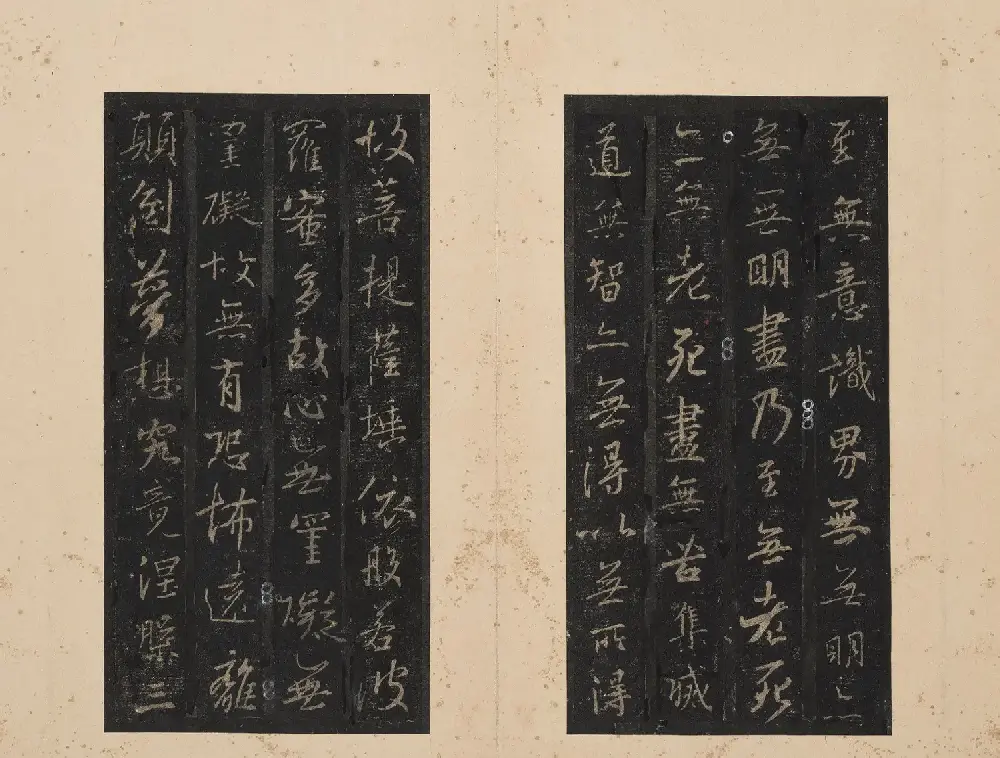 至無意識界無無明亦
無無明盡乃至無老死
亦無老死盡無苦集滅
道無智亦無得以無所得
故菩提薩埵依般若波
羅蜜多故心無罣礙無
罣礙故無有恐怖遠離
顛倒夢想究竟涅槃三